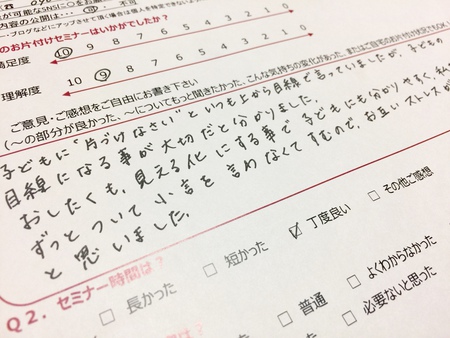 内容の公開は…
不可
・ブログなどにアップさせて頂く場合は個人を特定できない
のお片付けセミナーはいかがでしたか？
満足度
⑩ 9 8 7 6 5 4 3 2 1 0
理解度
10 ⑨ 8 7 6 5 4 3 2 1 0
ご意見・ご感想をご自由にお書き下さい
（〜の部分が良かった、〜についてもっと聞きたかった、こんな気持ちの変化があった、またはご自宅のお片付け
子どもに"片づけなさい"といつも上から目線で言っていましたが、子どもの
目線になる事が大切だと分かりました。
おしたくも、見える化にする事で子どもにも分かりやすく、私
ずっとついて小言を言わなくてすむので、お互いストレスが
と思いました。
Q2. セミナー時間は？
□ 長かった
□ 短かった
☑ 丁度良い
□ その他ご感想
□ 普通
□ よくわからなかった
□ 必要ないと思った